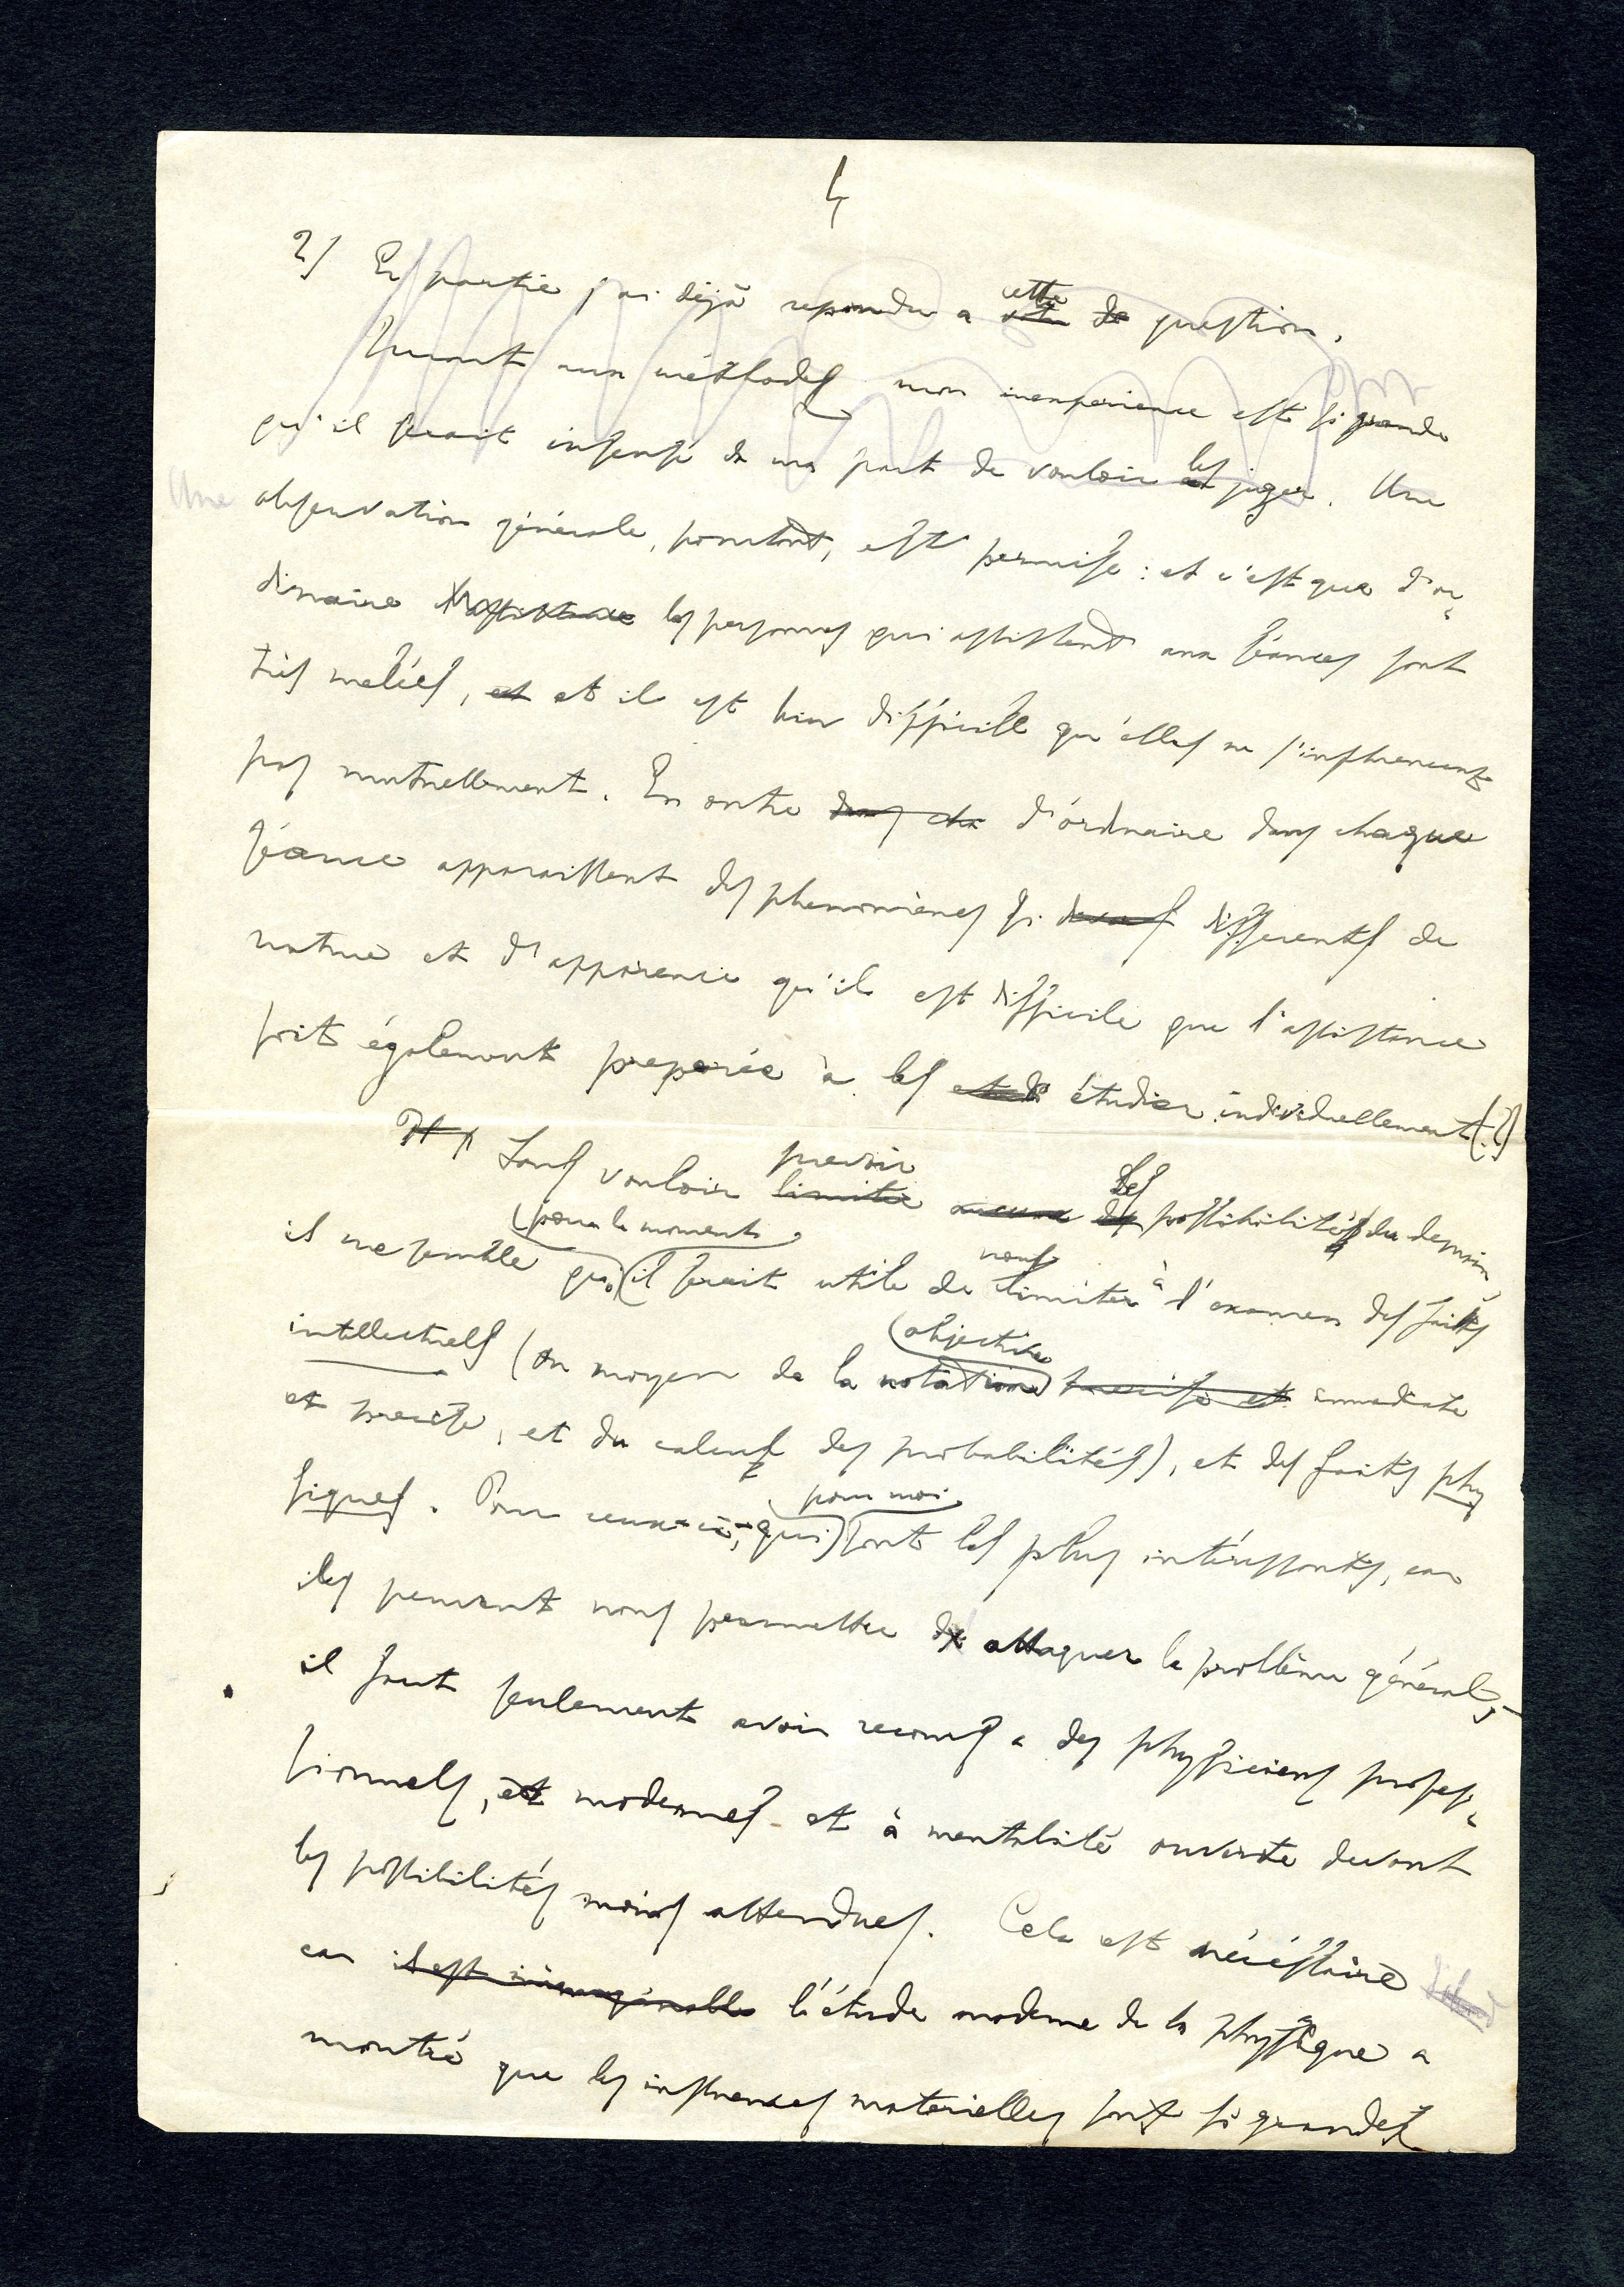 4
2) En partie j'ai déjà repondu a cette question.
Quant aux méthodes, mon inexperience est si grande
qu'il serait insensé de ma part de vouloir les juger. Une
Une observation générale, pourtant, est permise: et c'est que d'or-
dinaire les personnes qui assistent aux séances sont
très melées, et et il est bien difficille qu'elles ne s'influencent
pas mutuellement. En outre dans cha d'órdinaire dans chaque
séance apparaissent des phenomènes si differents de
nature et d'apparence qu'il est difficile que l'assistance
soit également preparée à les étudier individuellement (?)
Sans vouloir limiter prevoir aucune les possibilités du demain
(pour le moment)
il me semble qu'il serait utile de nous limiter à l'examen des faits
(objective)
intellectuels (au moyen de la notation precise et immediate
et precise, et du calcul des probabilités), et des faits phy
pour moi
siques. Pour ceux-ci, qui sont les plus intéressants, car
ils peuvent nous permettre d'attaquer le problème général,
il faut seulement avoir recours a des physiciens profes-
sionnels, et modernes et à mentalité ouverte devant
les possibilités moins attendues. Cela est nécéssaire
car il est inimaginable l'étude moderne de la physique a
montré que les influences materielles sont si grandes